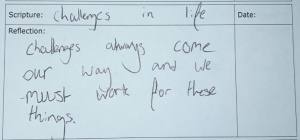 Scripture: challenges in life Date:
Reflection:
challenges always come
our way and we
must work for these
things.